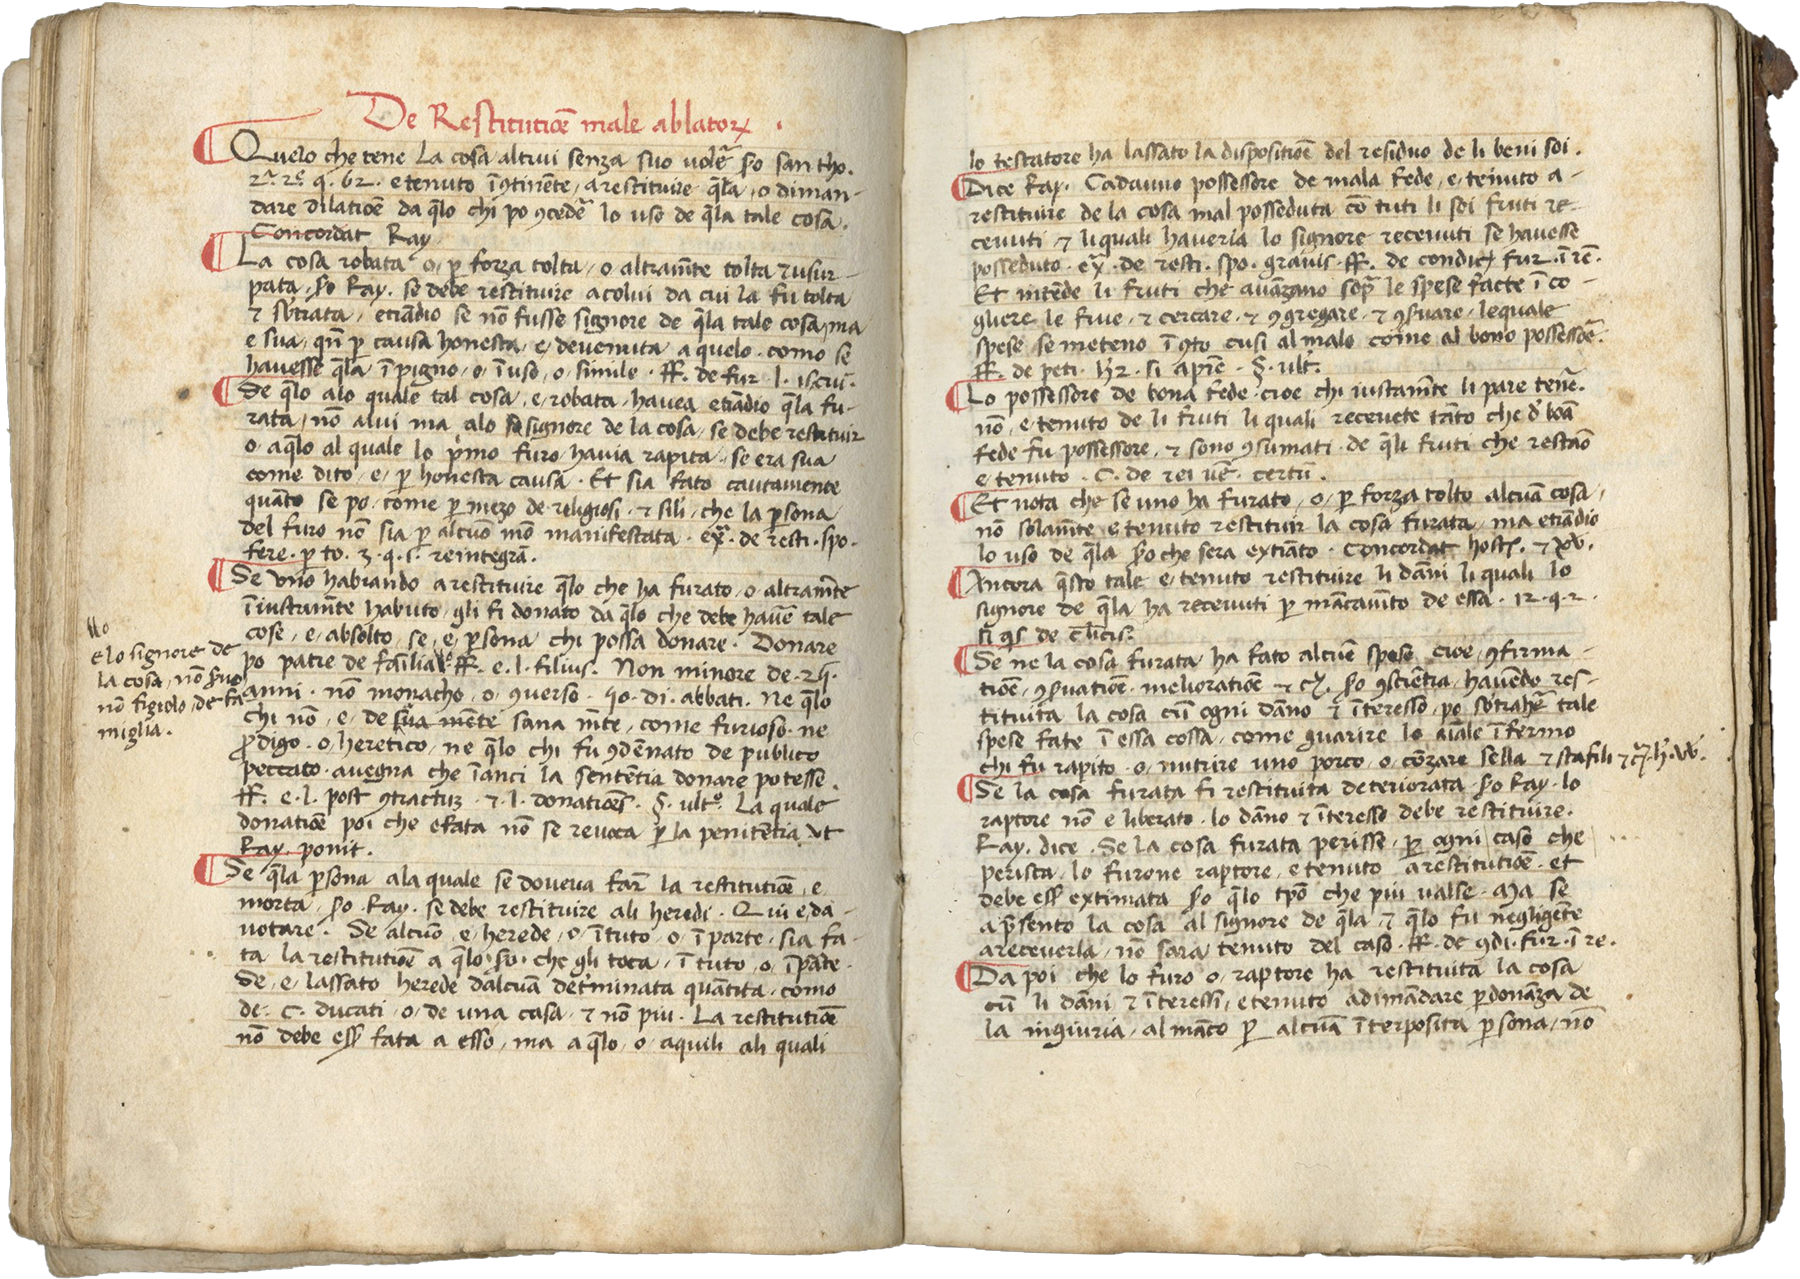 De Restitutiõe male ablatoꝝ .
Quelo che tene la cosa altrui senza suo volẽ so san tho.
2ª. 2ᵉ. q. 62. e tenuto ĩ ꝯtinẽte, a restituire q̃la, o diman-
dare dilatiõe da q̃lo chi po ꝯcedẽ lo uso de q̃la tale cosa.
Concordat Ray.
La cosa robata o, ꝑ forza tolta, o altram̃te tolta ⁊ usur-
pata, so Ray. se debe restituire a colui da cui la fu tolta
⁊ sotrata, etiãdio se nõ fusse signore de q̃la tale cosa, ma
e sua, qñ ꝑ causa honesta, e, deuenuta a quelo. como se
hauesse q̃la ĩ pigno, o, ĩ uso, o, simile. ff. de fur. l. is cui.
Se q̃lo alo quale tal cosa, e, robata, hauea etiãdio q̃la fu-
rata, nõ alui ma alo signore de la cosa, se debe restituir
o aq̃lo al quale lo p̾mo furo hauia rapita, se era sua
come dito, e, ꝑ honesta causa. Et sia fato cautamente
quãto se po, come ꝑ mezo de religiosi, ⁊ sili, che la ꝑsona
del furo nõ sia ꝑ alcuõ mõ manifestata. ex̃. de resti. spo.
fere. ꝑ to. 3. q. 1. reintegrã.
Se vno habiando a restituire q̃lo che ha furato, o, altram̃te
ĩiustam̃te habuto, gli fi donato da q̃lo che debe hauẽ tale
cose, e, absolto, se, e, ꝑsona chi possa donare. Donare
po patre de familia ff. e. l. filius. Non minore de. 25.
anni. nõ monacho, o, ꝯuerso. qo. di. abbati. Ne q̃lo
chi nõ, e, de sua mẽte sana m̃te, come furioso. ne
ꝓdigo. o, heretico, ne q̃lo chi fu ꝯdẽnato de publico
peccato. auegna che ĩanci la sentẽtia donare potesse.
ff. e. l. post ꝯtractuz. ⁊. l. donatiões. §. ultº. La quale
donatiõe poi che e fata nõ se reuoca ꝑ la penitẽtia. vt
Ray. ponit.
Se q̃la ꝑsona ala quale se doueua far̃ la restitutiõe, e,
morta, so. Ray. se debe restituire ali heredi. Qui e, da
notare. Se alcuõ, e, herede, o, ĩ tuto, o, ĩ parte, sia fa-
ta la restitutiõe a q̃lo so. che gli toca, ĩ tuto, o, ĩ ꝑate.
Se, e, lassato herede dalcuã det̾minata quãtita. como
de. C. ducati, o, de una casa, ⁊ nõ piu. La restitutiõe
nõ debe eẽ fata a esso, ma a q̃lo, o, aquili ali quali
e lo signore de
la cosa, nõ suo
nõ figiolo, de fa
miglia.
lo testatore ha lassato la dispositiõe del residuo de li beni soi.
Dice Ray. Cadauno possessore de mala fede, e, tenuto a-
restituire de la cosa mal posseduta cõ tuti li soi fruti re-
ceuuti ⁊ li quali haueria lo signore receuuti se hauesse
posseduto. ex̃. de resti. spo. grauis. ff. de condict̃ fur. ĩ rẽ.
Et intẽde li fruti che auãzano sop̃ le spese facte ĩ co-
gliere le fiue, ⁊ cercare, ⁊ ꝯgregare, ⁊ ꝯseruare, lequale
spese se meteno ĩ ꝯto cusi al malo come al bono possessõe.
ff. de peti. h̾2. si a pĩe. §. ult.
Lo possessore de bona fede. cioe chi iustam̃te li pare tenẽ.
nõ, e, tenuto de li fruti li quali receuete tãto che d̾ boã
fede fu possessore, ⁊ sono ꝯsumati. de q̃li fruti che restaõ
e tenuto. C. de rei uẽ. certũ.
Et nota che se uno ha furato, o, ꝑ forza tolto alcuã cosa,
nõ solam̃te e tenuto restituir la cosa furata, ma etiãdio
lo uso de q̃la so che sera extiãto. Concordat host̃. ⁊ xv.
Ancora q̃sto tale e tenuto restituire li dãni li quali lo
signore de q̃la ha receuuti ꝑ mãcam̃to de essa. 12. q. 2.
si qs de cl̃icis.
Se ne la cosa furata ha fato alcuẽ spese cioe, ꝯfirma-
tiõe, ꝯseruatiõe. melioratiõe ⁊ cꝫ. so ꝯsciẽtia, hauẽdo res-
tituita la cosa cũ ogni dãno ⁊ ĩteresso, po sotrahẽ tale
spese fate ĩ essa cossa, come guarire lo aĩale ĩfermo
chi fu rapito. o, nutire uno porco, o cõzare sella ⁊ stafili ⁊ cꝫ. h̾. w.
Se la cosa furata fi restituita deteriorata so Ray. lo
raptore nõ e liberato. lo dãno ⁊ ĩteresso debe restituire.
Ray. dice. Se la cosa furata perisse, ꝑ ogni caso che
perisca, lo furone raptore, e tenuto a restitutiõe. et
debe eẽ extimata so q̃lo tp̃o che piu ualse. Ma se
a p̃sento la cosa al signore de q̃la, ⁊ q̃lo fu negligẽte
a receuerla, nõ sara tenuto del caso. ff. de ꝯdi. fur. ĩ re.
Da poi che lo furo o, raptore ha restituita la cosa
cũ li dãni ⁊ ĩteressi, e tenuto adimãdare ꝑdonãza de
la ingiuria, al mãco ꝑ alcuã ĩterposita ꝑsona, nõ